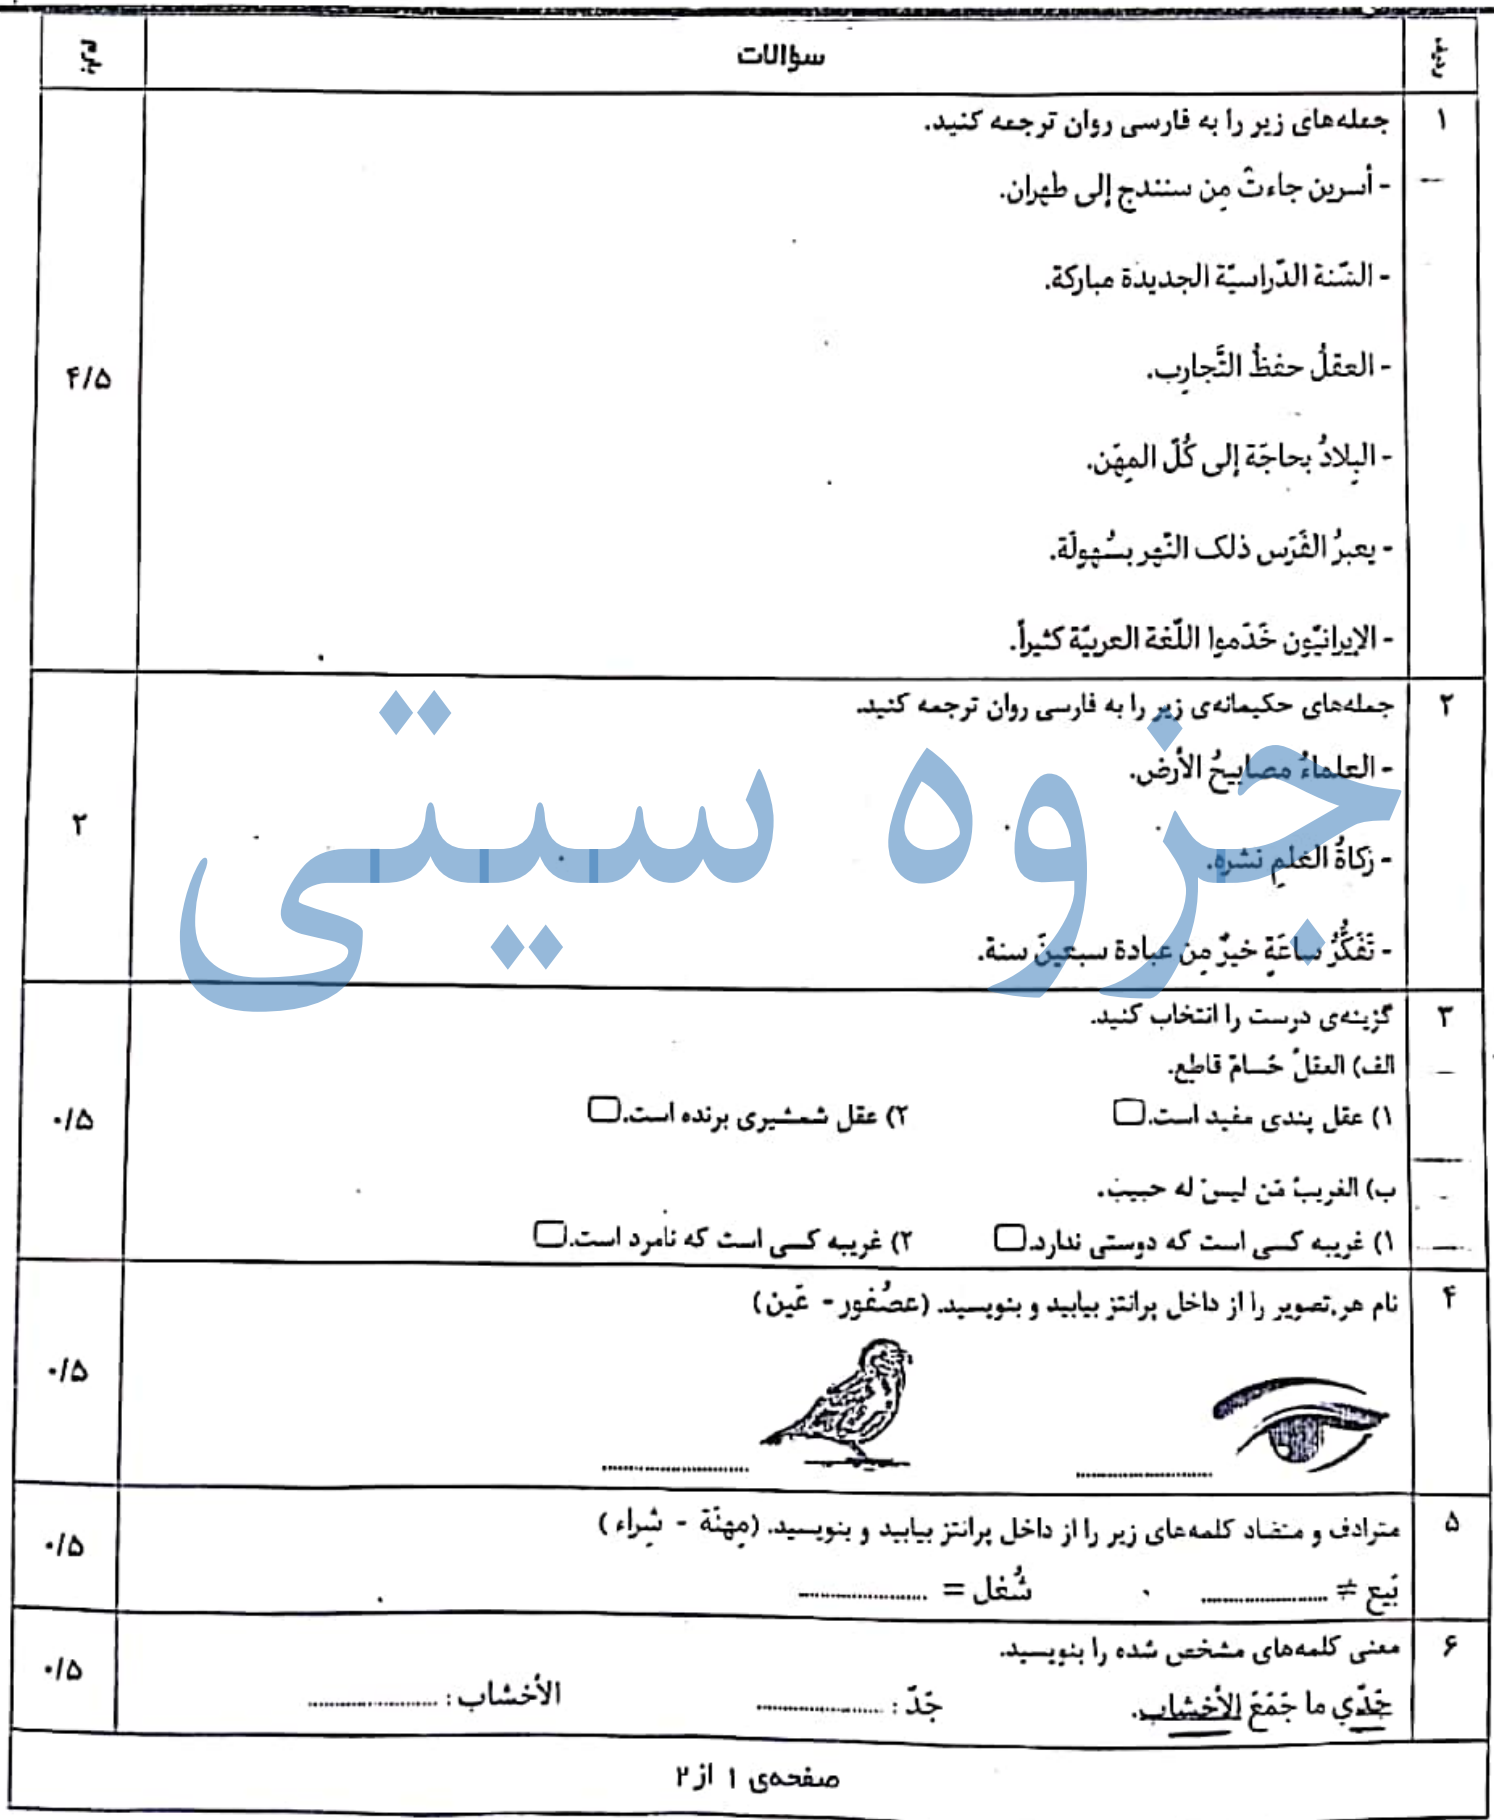 ردیف سؤالات بارم
۱ جمله‌های زیر را به فارسی روان ترجمه کنید.
- أسرین جاءتْ مِن سنندج إلی طهران.
- السّنة الدّراسیّة الجدیدة مبارکة.
- العقلُ حفظُ التَّجارِب.
- البِلادُ بحاجَة إلی کُلّ المِهَن.
- یعبرُ الفَرَس ذلک النّهر بسُهولَة.
- الإیرانیّون خَدَموا اللّغة العربیّة کثیراً.
۴/۵
۲ جمله‌های حکیمانه‌ی زیر را به فارسی روان ترجمه کنید.
- العلماءُ مصابیحُ الأرض.
- زکاةُ العلمِ نشره.
- تَفَکُّرُ ساعَةٍ خیرٌ مِن عبادة سبعینَ سنة.
۲
جزوه سیتی
۳ گزینه‌ی درست را انتخاب کنید.
الف) العقلُ حُسامٌ قاطع.
۱) عقل پندی مفید است. ۲) عقل شمشیری برنده است.
ب) الغریبُ مَن لیسَ له حبیبٌ.
۱) غریبه کسی است که دوستی ندارد. ۲) غریبه کسی است که نامرد است.
۰/۵
۴ نام هر تصویر را از داخل پرانتز بیابید و بنویسید. (عصُفور - عَین)
........................ ........................
۰/۵
۵ مترادف و متضاد کلمه‌های زیر را از داخل پرانتز بیابید و بنویسید. (مِهنَة - شِراء)
بَیع ≠ ........................ شُغل = ........................
۰/۵
۶ معنی کلمه‌های مشخص شده را بنویسید.
جَدّي ما جَمَعَ الأخشاب. جَدّ : ........................ الأخشاب : ........................
۰/۵
صفحه‌ی ۱ از ۲